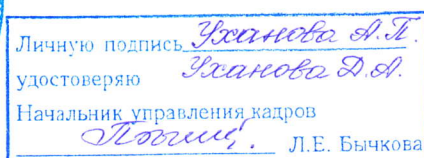 Личную подпись Уханова А.П.
удостоверяю Уханова Д.А.
Начальник управления кадров
Л.Е. Бычкова